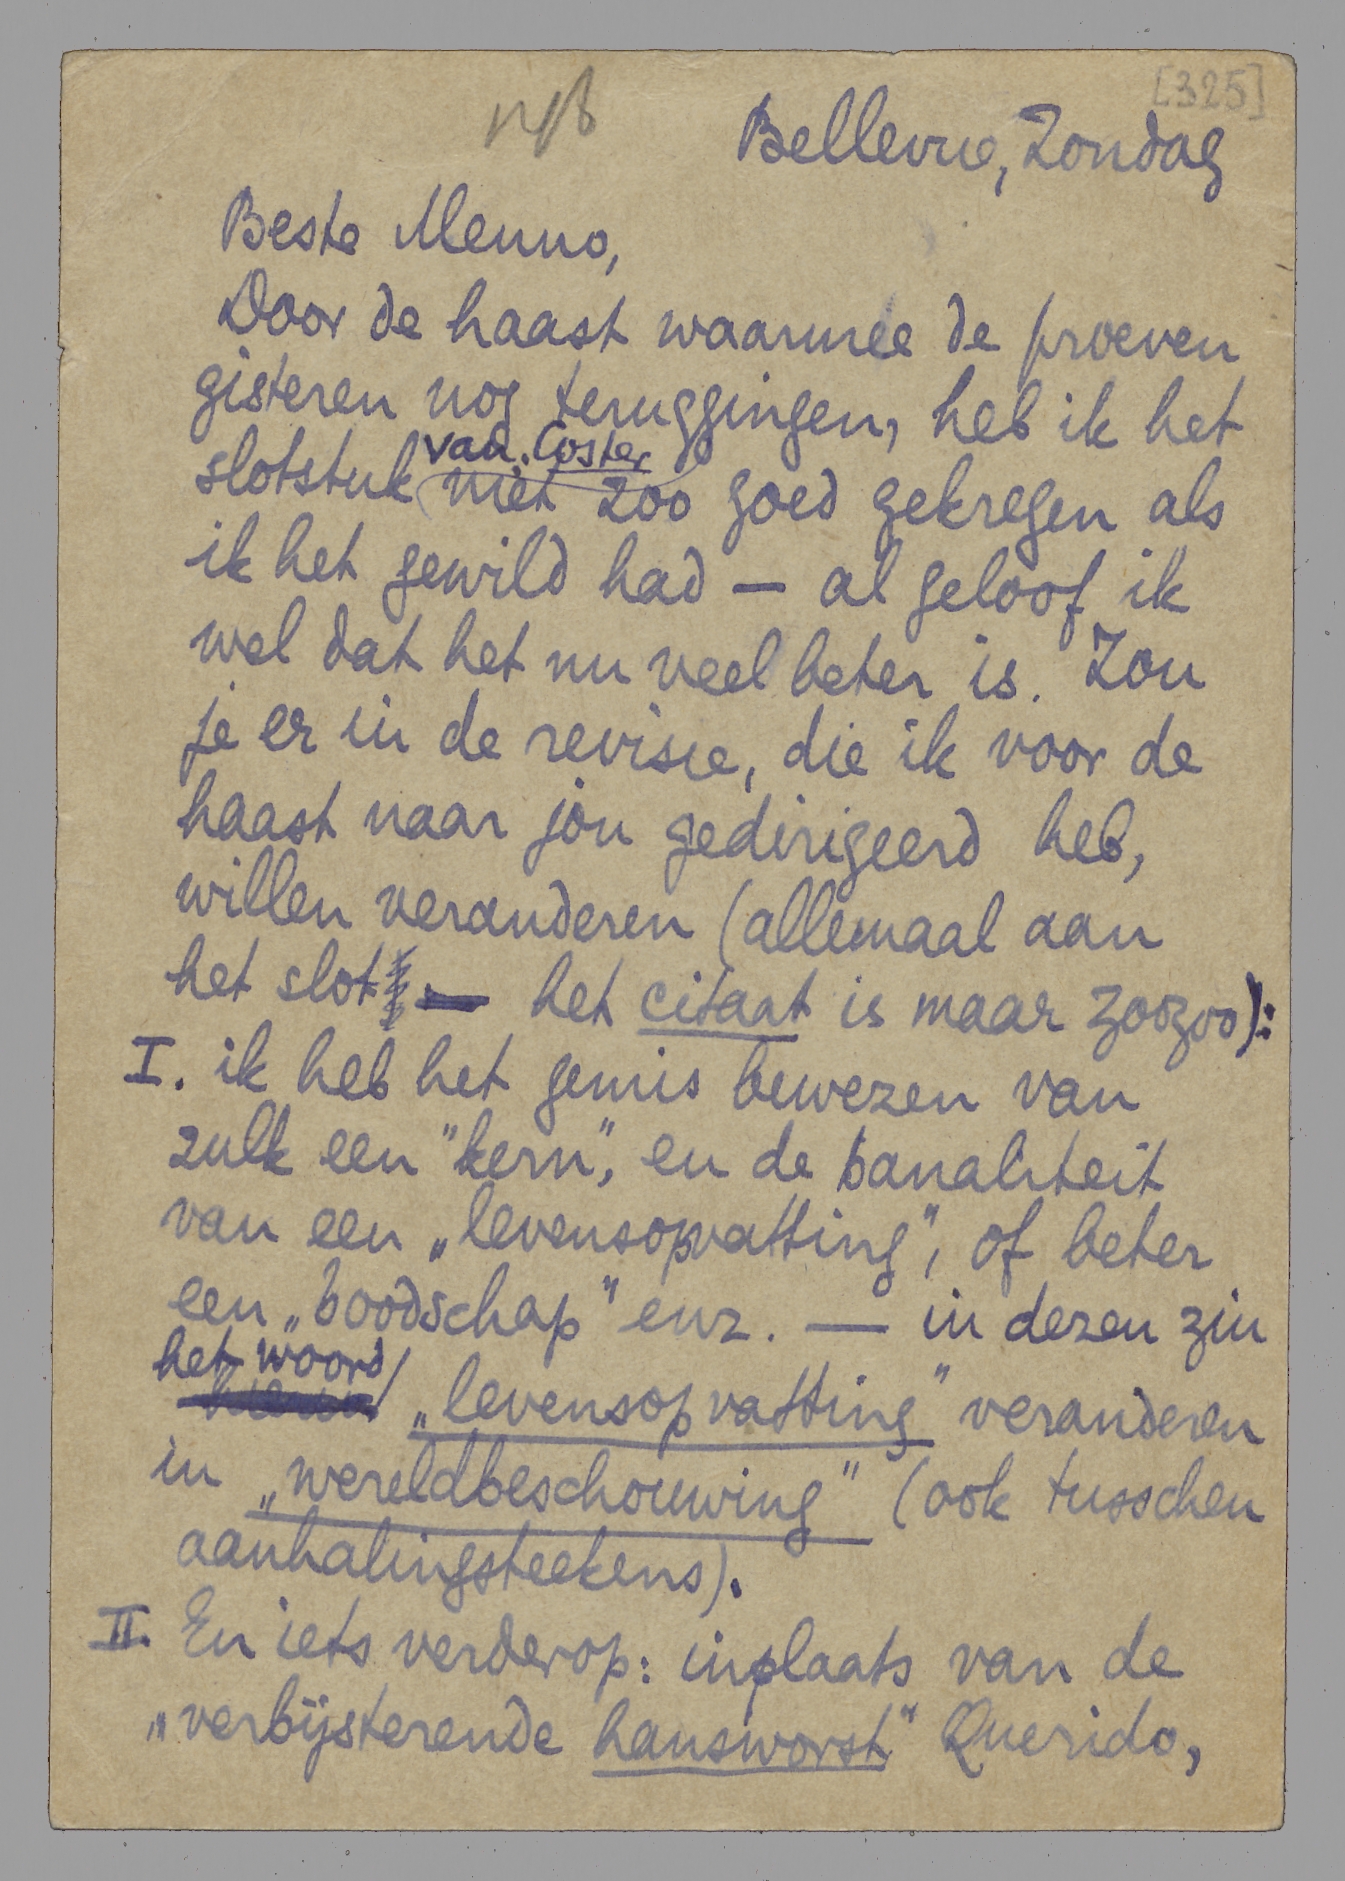 [325]
Bellevue, Zondag
Beste Menno,
Door de haast waarmee de proeven
gisteren nog teruggingen, heb ik het
slotstuk van Coster niet zoo goed gekregen als
ik het gewild had — al geloof ik
wel dat het nu veel beter is. Zou
je er in de revisie, die ik voor de
haast naar jòu gedirigeerd heb,
willen veranderen (allemaal aan
het slot — het citaat is maar zoozoo):
I. ik heb het gemis bewezen van
zulk een "kern", en de banaliteit
van een „levensopvatting", of beter
een „boodschap" enz. — in dezen zin
het woord „levensopvatting" veranderen
in „wereldbeschouwing" (ook tusschen
aanhalingsteekens).
II. En iets verderop: inplaats van de
„verbijsterende hansworst" Querido,